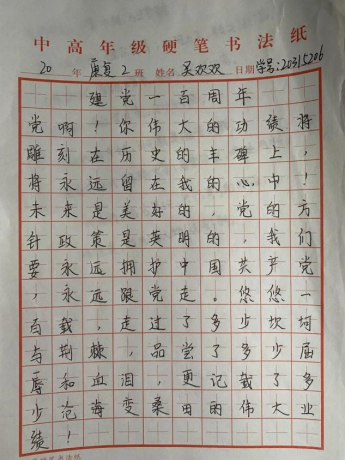 中高年级硬笔书法纸
20年康复2班 姓名:吴欢欢 日期 学号:20315206
建党一百周年
党啊!你伟大的功绩将
雕刻在历史的丰碑上,
将永远留在我的心中!
未来是美好的,党的方
针政策是英明的,我们
要永远拥护中国共产党
,永远跟党走。悠悠一
百载,走过了多少坎坷
与荆棘,品尝了多少屈
辱和血泪,更记载了多
少沧海变桑田的伟大业
绩!